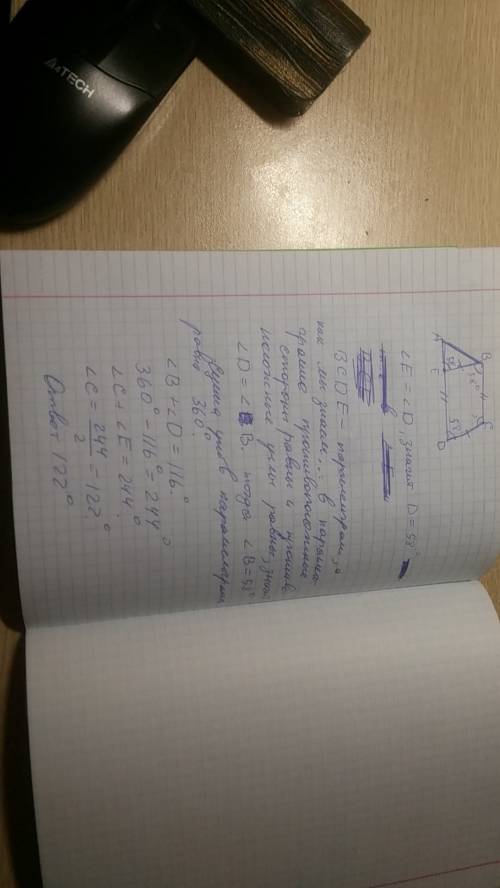 A4TECH
B
C
A
E
D
58°
58°
∠E = ∠D, значит D = 58°
BCDE - параллелограм, а
как мы знаем, в паралле
граме противоположные
стороны равны и против
положные углы равны, значит
∠D = ∠B. тогда ∠B = 58°
Сумма углов параллелограм
равна 360°.
∠B + ∠D = 116°
360° - 116° = 244°
∠C + ∠E = 244°
∠C = 244/2 = 122°
Ответ 122°